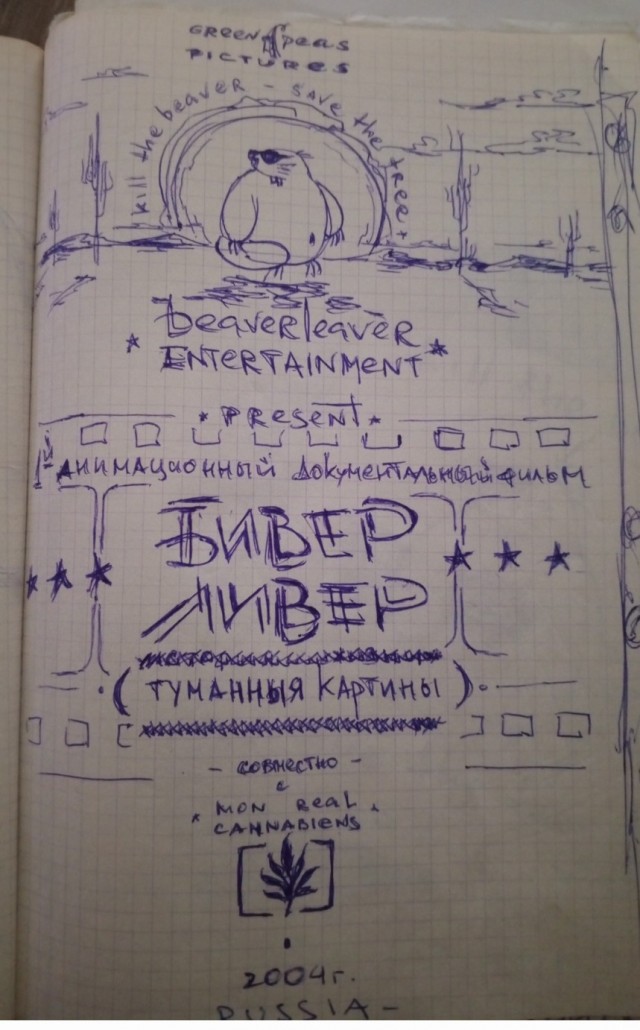 GREEN peas
PICTURES
kill the beaver - SAVE the tree
beaverleaver
ENTERTAINMENT
present
1й АНИМАЦИОННЫЙ ДОКУМЕНТАЛЬНЫЙ ФИЛЬМ
БИВЕР
ЛИВЕР
(ТУМАННЫЯ КАРТИНЫ)
- СОВМЕСТНО -
с
MON REAL
CANNABIENS
2004г.
RUSSIA -